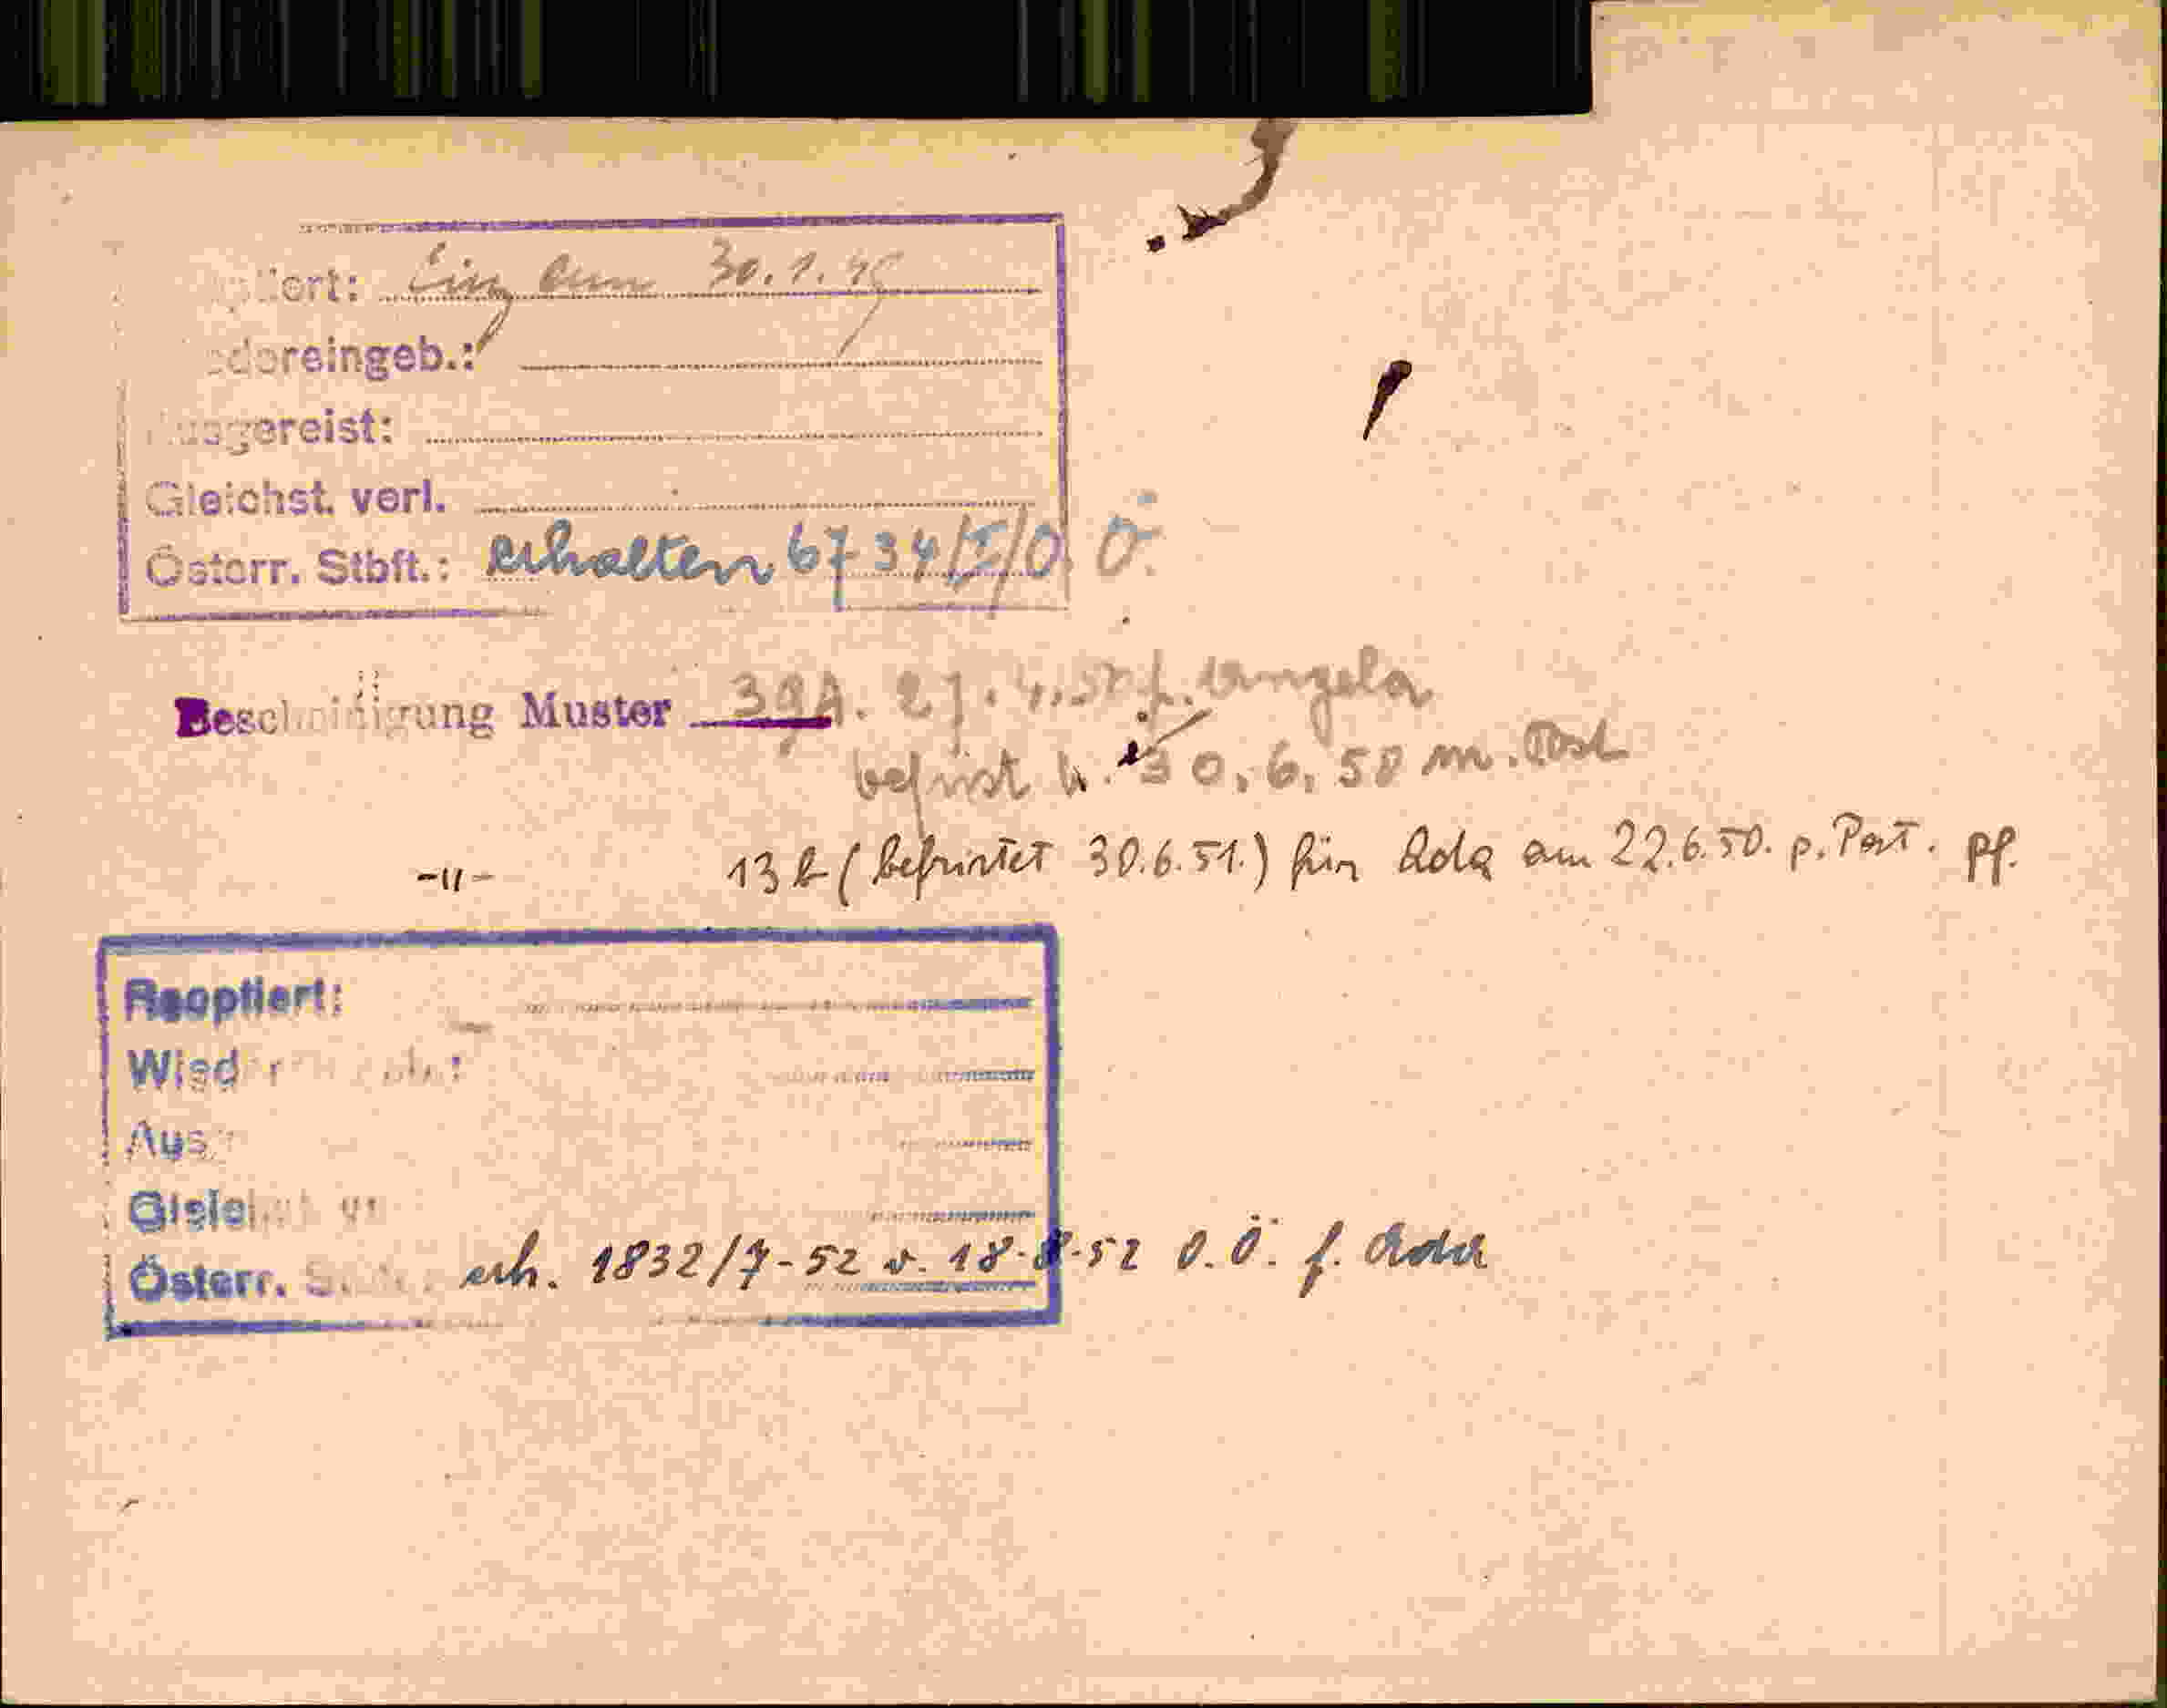 Linz am 30.1.49
edereingeb.:
Ausgereist:
Gleichst. verl.
Österr. Stbft.: erhalten 6734/I/O.Ö.
Bescheinigung Muster 39A. 27.4.50 f. Angela
befrist b. 30.6.50 m. Post
-"- 13b (befristet 30.6.51.) für Ada am 22.6.50. p. Post. pf.
Reoptiert:
Wied
Aus
Gleich
Österr. erh. 1832/7-52 v. 18-8-52 O.Ö. f. Ada